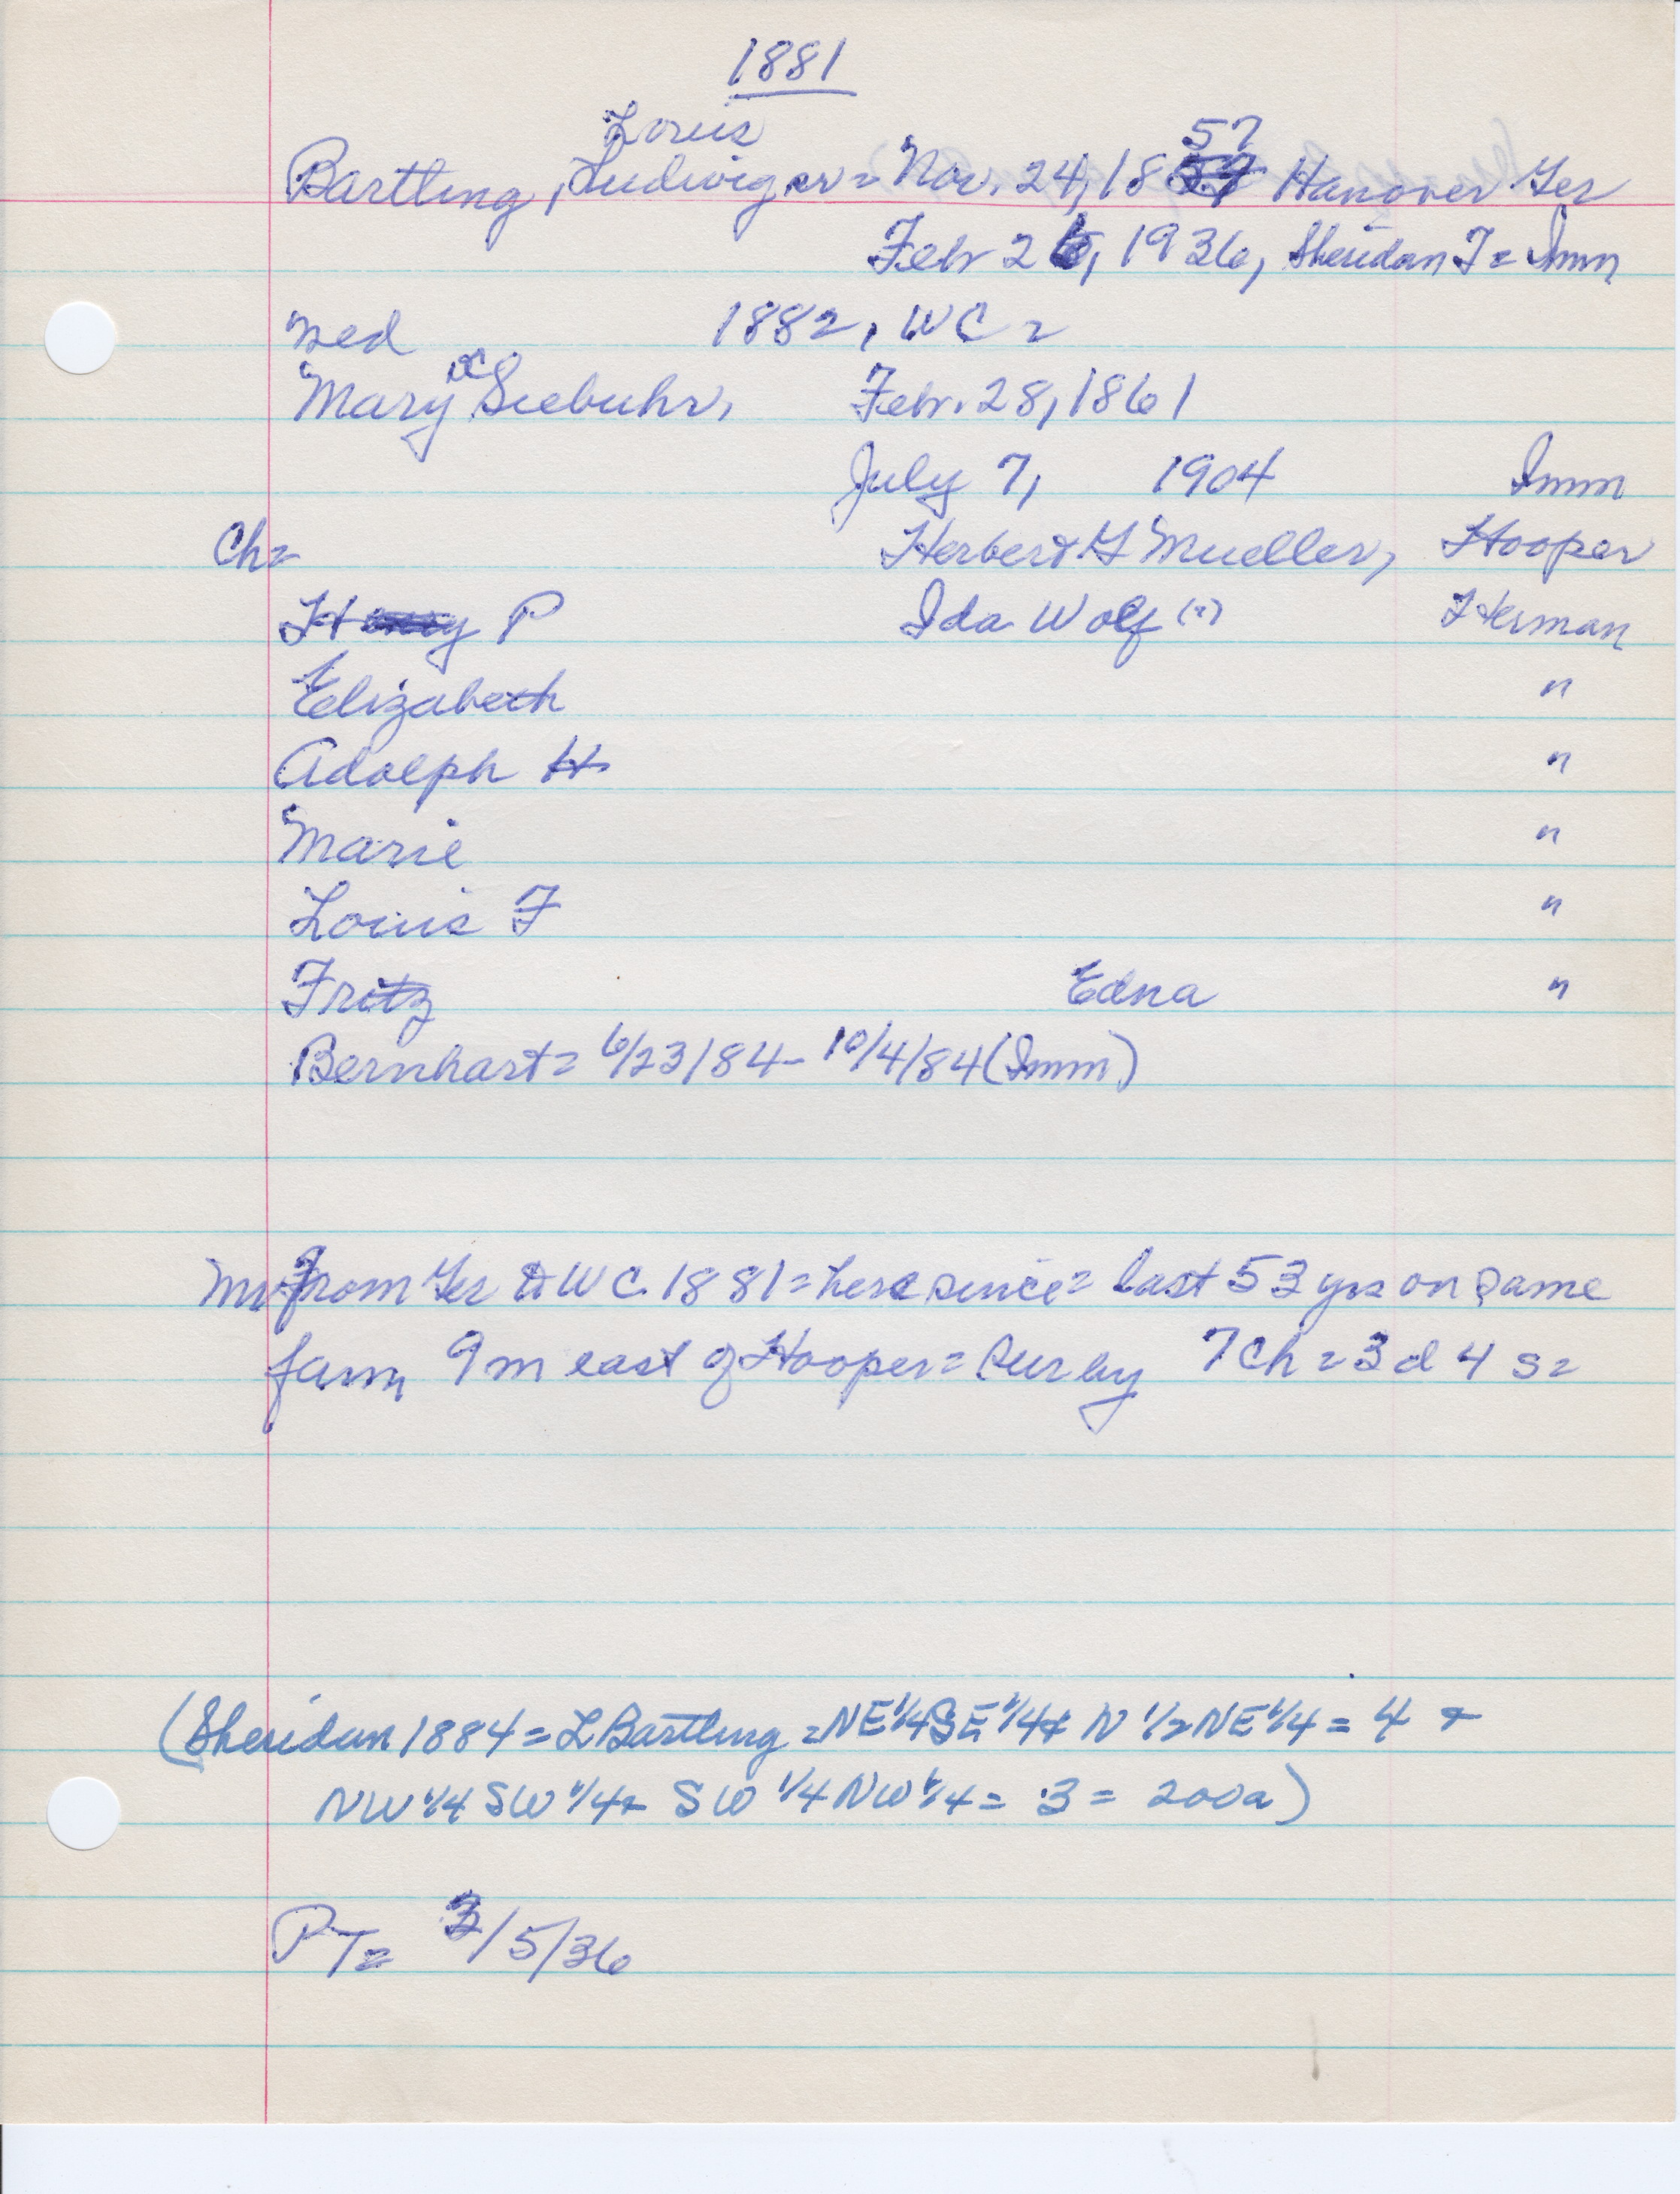 1881
Louis
57
Bartling, Ludwig sr = Nov. 24, 18 Hanover Ger
Febr 26, 1936, Sheridan T = Imm
med 1882, WC =
Mary C Seebuhr, Febr. 28, 1861
July 7, 1904 Imm
Ch= Herbert G Mueller, Hooper
H P Ida Wolf (?) Herman
Elizabeth "
Adolph H "
Marie "
Louis F "
Fritz Edna "
Bernhart = 6/23/84 - 10/4/84 (Imm)
Mr From Ger to WC. 1881 = here since = last 53 yrs on same
farm, 9 m east of Hooper = Sur by 7 Ch = 3 d 4 s =
(Sheridan 1884 = L Bartling = NE 1/4 SE 1/4 & N 1/2 NE 1/4 = 4 &
NW 1/4 SW 1/4 & SW 1/4 NW 1/4 = 3 = 200a)
PT = 3/5/36